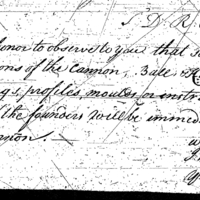 S. D. R.
honor to observe to you that
ons of the Cannon, Ball
gs, profiles, moules, or instr
the founders will be immed